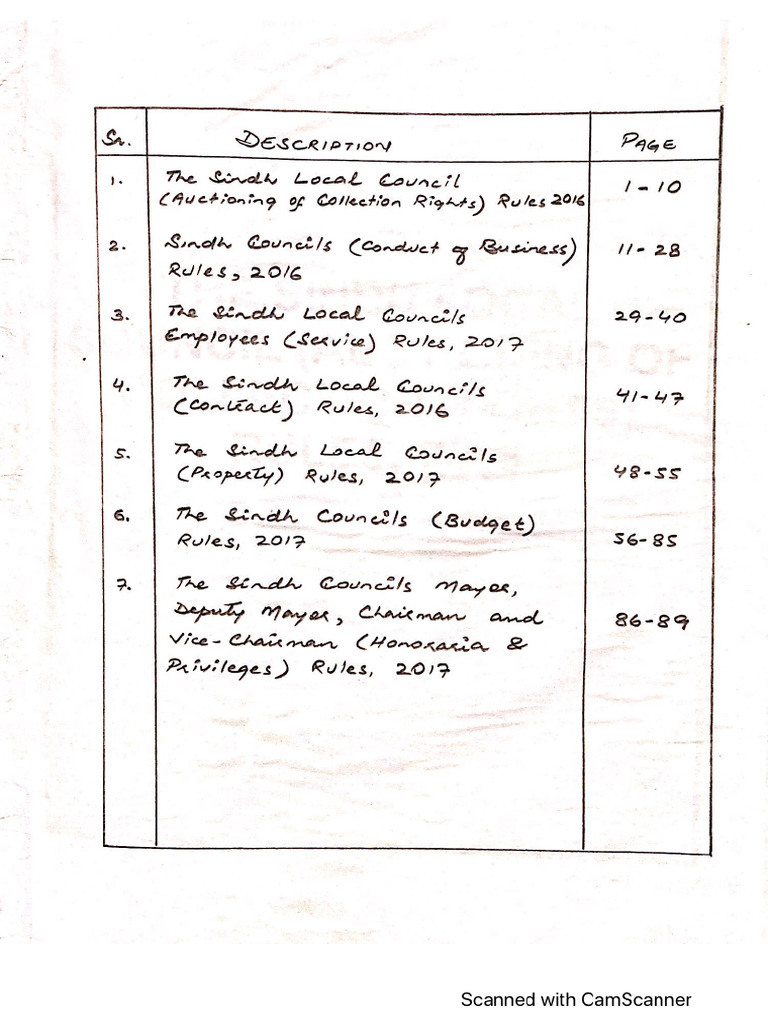 Sr. DESCRIPTION PAGE
1. The Sindh Local Council
(Auctioning of Collection Rights) Rules 2016 1-10
2. Sindh Councils (Conduct of Business) 11-28
Rules, 2016
3. The Sindh Local Councils 29-40
Employees (Service) Rules, 2017
4. The Sindh Local Councils 41-47
(Contract) Rules, 2016
5. The Sindh Local Councils
(Property) Rules, 2017 48-55
6. The Sindh Councils (Budget)
Rules, 2017 56-85
7. The Sindh Councils Mayor,
Deputy Mayor, Chairman and 86-89
Vice-Chairman (Honoraria &
Privileges) Rules, 2017
Scanned with CamScanner